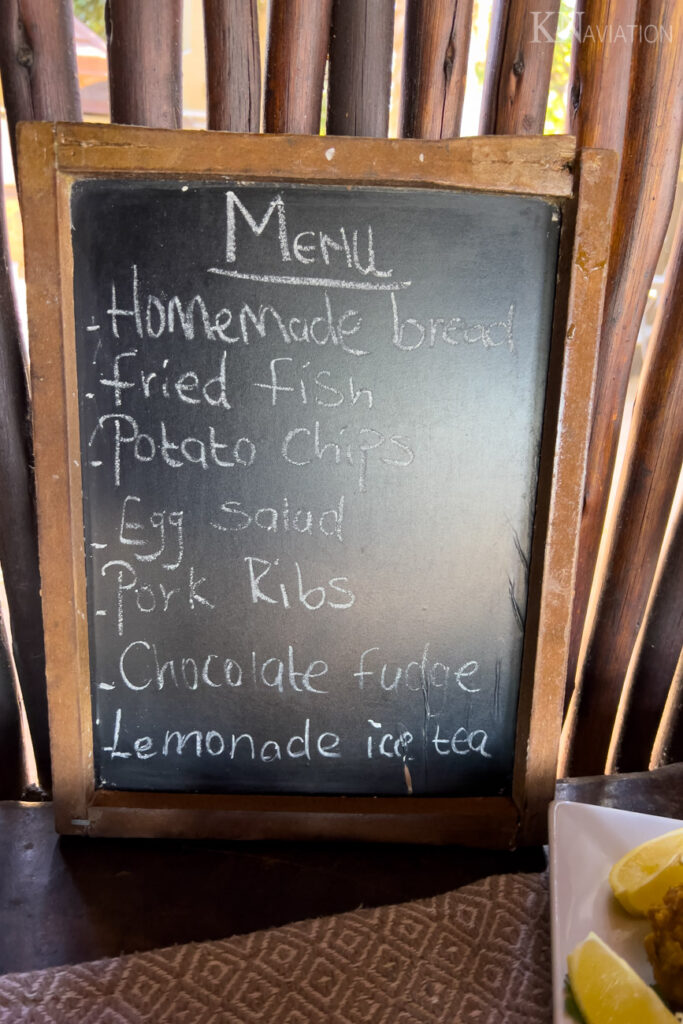 KN AVIATION
Menu
- Homemade bread
- Fried fish
- Potato Chips
- Egg Salad
- Pork Ribs
- Chocolate fudge
- Lemonade ice tea